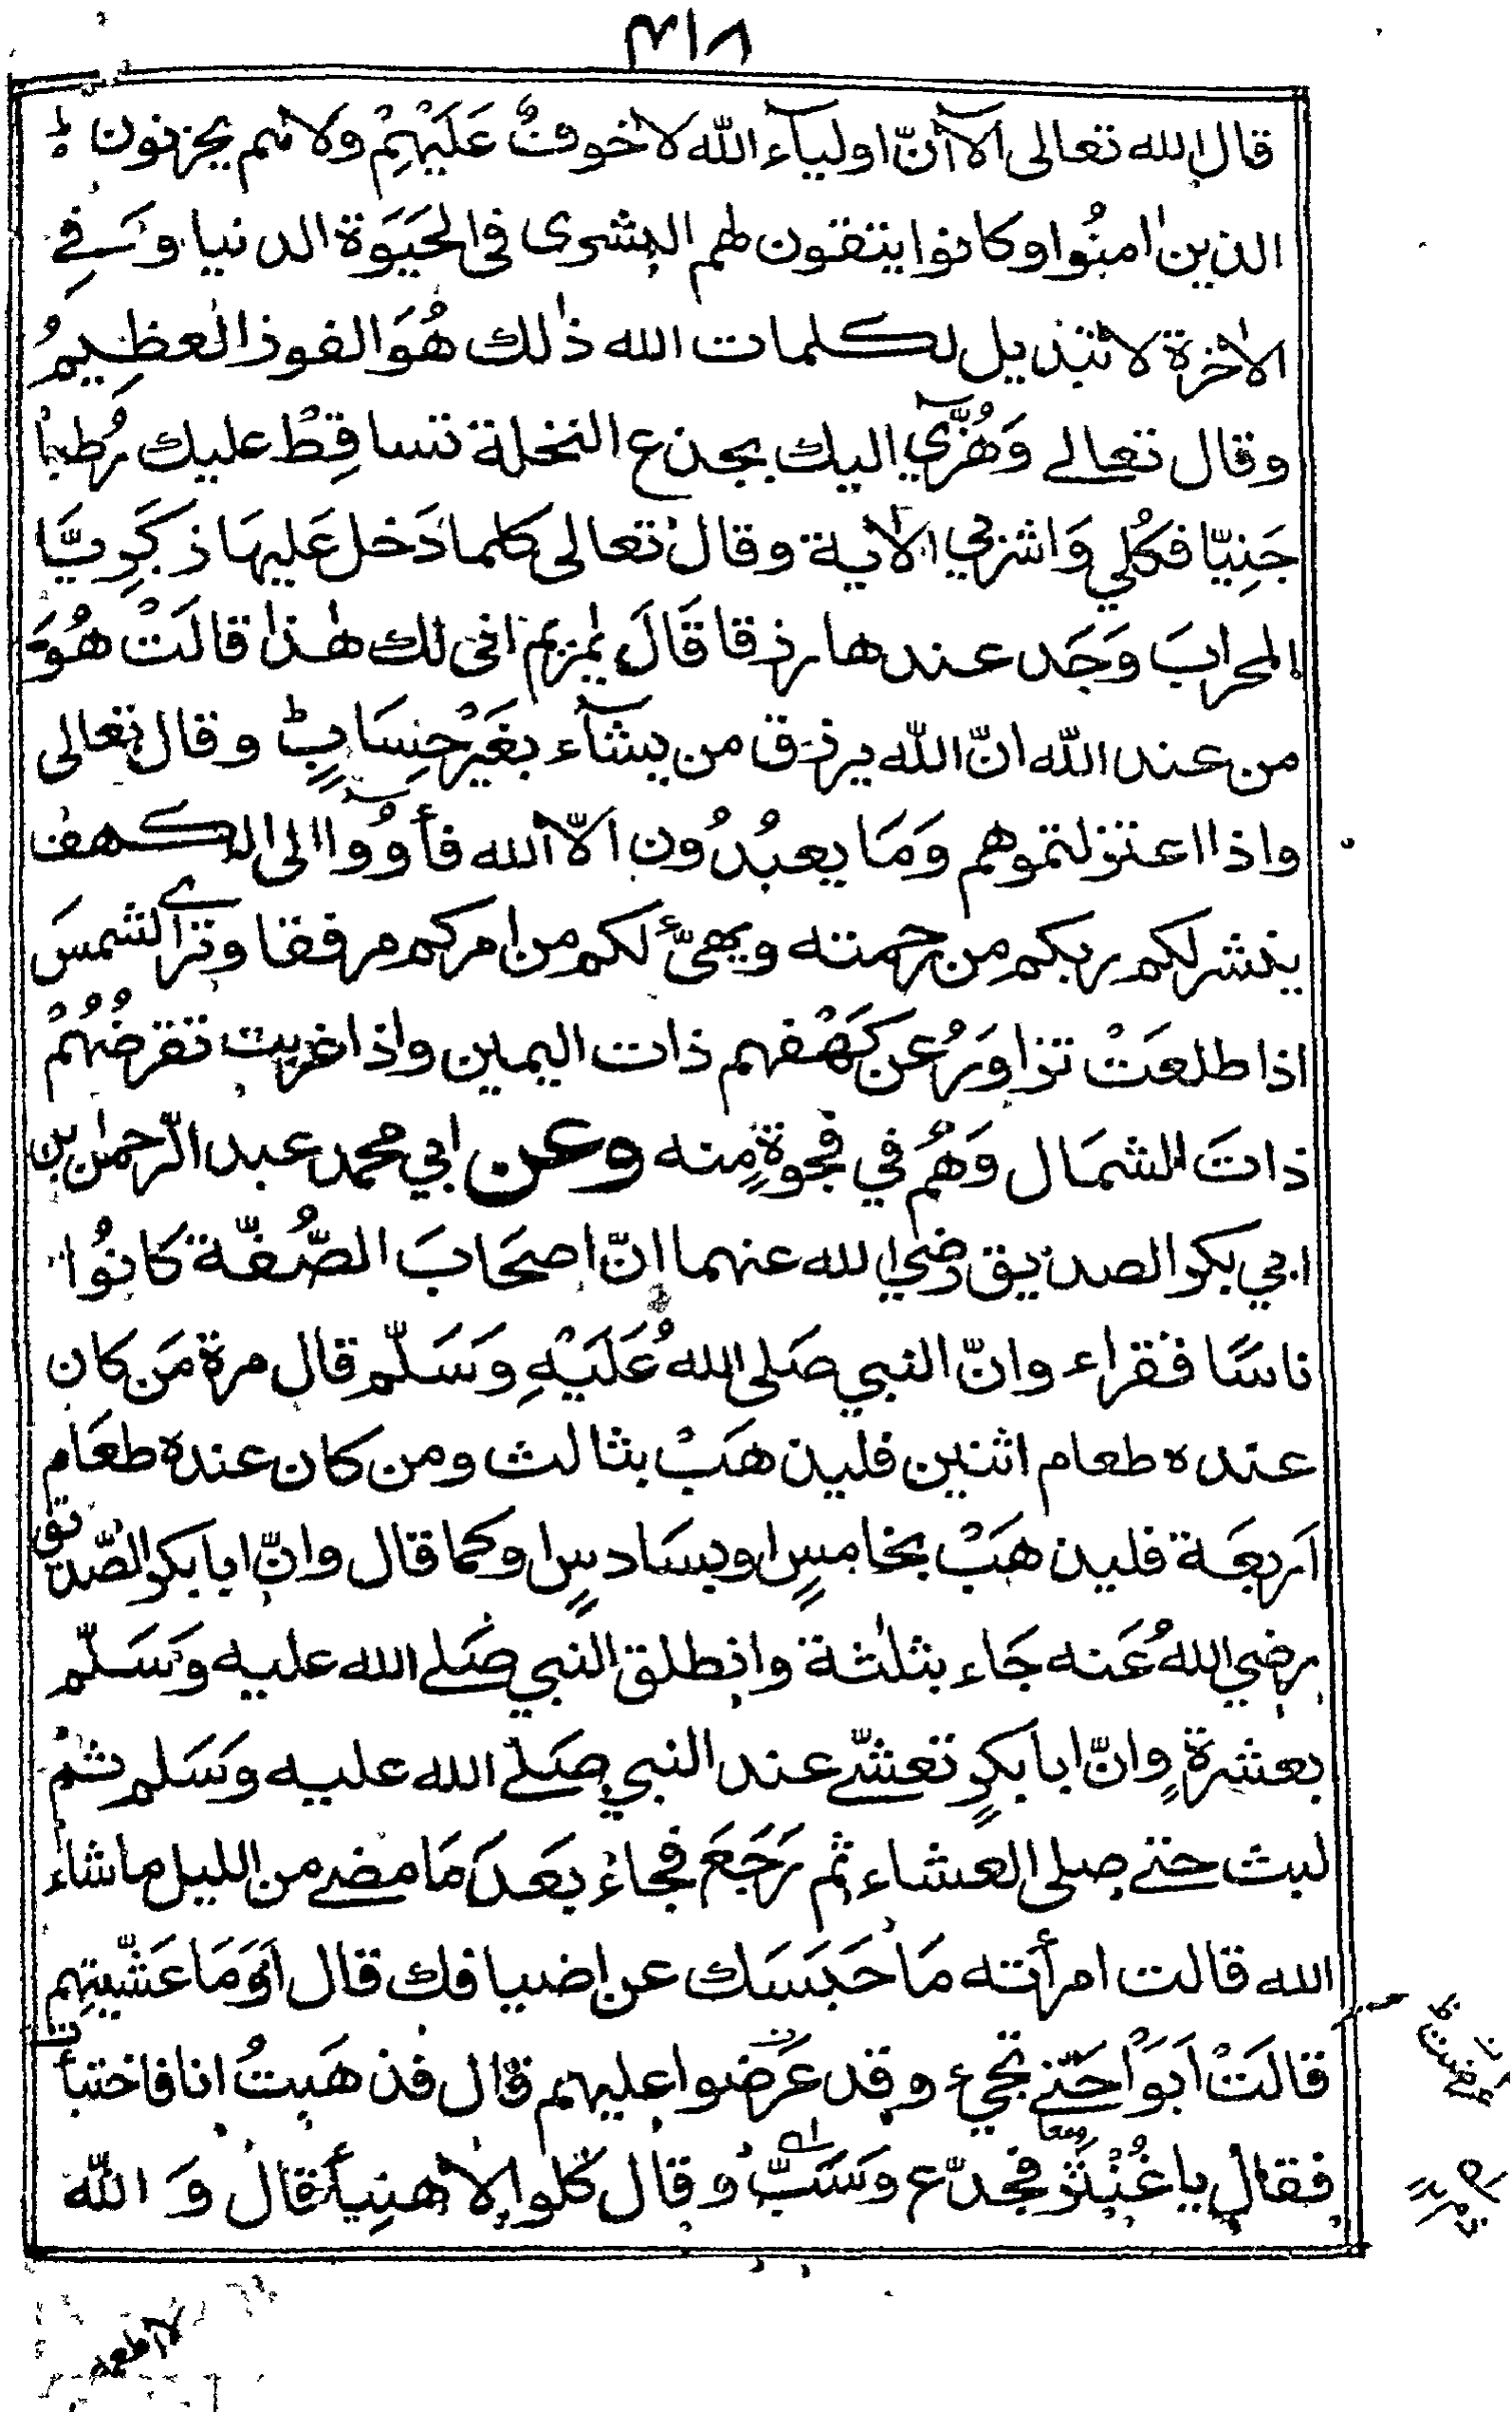 ٤١٨
قال الله تعالى الآ اِنّ اوليآء الله لا خوفٌ عَلَيْهِمْ ولا هم يحزنون ط
الذين اٰمنُوا وكانوا يتقون لهم البشرى فى الحَيَوة الدنيا وَ فے
الاٰخرة لا تبديل لكلمات الله ذٰلك هُوَ الفوز العظِيمُ
وقال تعالے وَهُزِّي اليك بجذع النخلة تساقِطْ عليك رُطبًا
جَنِيّا فكُلي وَاشربي الاٰية وقال تعالى كلما دَخل عَليهَا زكَرِيَّا
المحرابَ وَجَد عندها رزقا قَالَ يٰمريم انى لك هٰذا قالَتْ هُوَ
من عند الله انّ الله يرزق من يشآء بغَيْر حِسَابٍ ط وقال تعالى
واذا اعتزلتموهم وَمَا يعبُدُون الاّ الله فأوُوا الى الكهف
ينشر لكم ربكم من رحمته ويهيّئ لكم من امركم مرفقا وترے الشمسَ
اذا طلعَتْ تزاوَرُ عن كَهْفهم ذات اليمين واذا غربت تقرضُهُمْ
ذاتَ الشمَال وَهُم في فجوةٍ منه وعن ابي محمد عبد الرّحمٰن بن
ابي بكر الصديق رضي الله عنهما انّ اصحَابَ الصُّفّة كانُوا
ناسًا فقراء وانّ النبي صَلى اللهُ عَلَيْهِ وَسَلّم قال مرة مَن كان
عنده طعام اثنين فليذهَبْ بثالث ومن كان عنده طعَام
اَربعَة فليذهَبْ بخامسٍ او بسَادسٍ او كما قال وانّ ابا بكر الصّديق
رضي اللهُ عَنه جَاء بثلٰثة وانطلق النبي صَلے الله عليه وَسَلّم
بعشرةٍ وانّ ابا بكرٍ تعشّے عند النبي صَلّے الله عليه وسَلم ثم
لبث حتے صلى العشاء ثم رَجَعَ فجاءَ بعَد مَا مضے من الليل ما شاء
الله قالت امرأته مَا حَبَسَك عن اضيافك قال اَوَ مَا عَشّيتِهِم
قالَتْ اَبَوْا حَتّے تجيء وقد عَرَضوا عليهم قال فذهَبتُ انا فاختبأت
فقال يا غُنْثَرُ فجدّع وَسَبّ وقال كلوا لا هنِيأ قال وَ الله
لا اطعمه